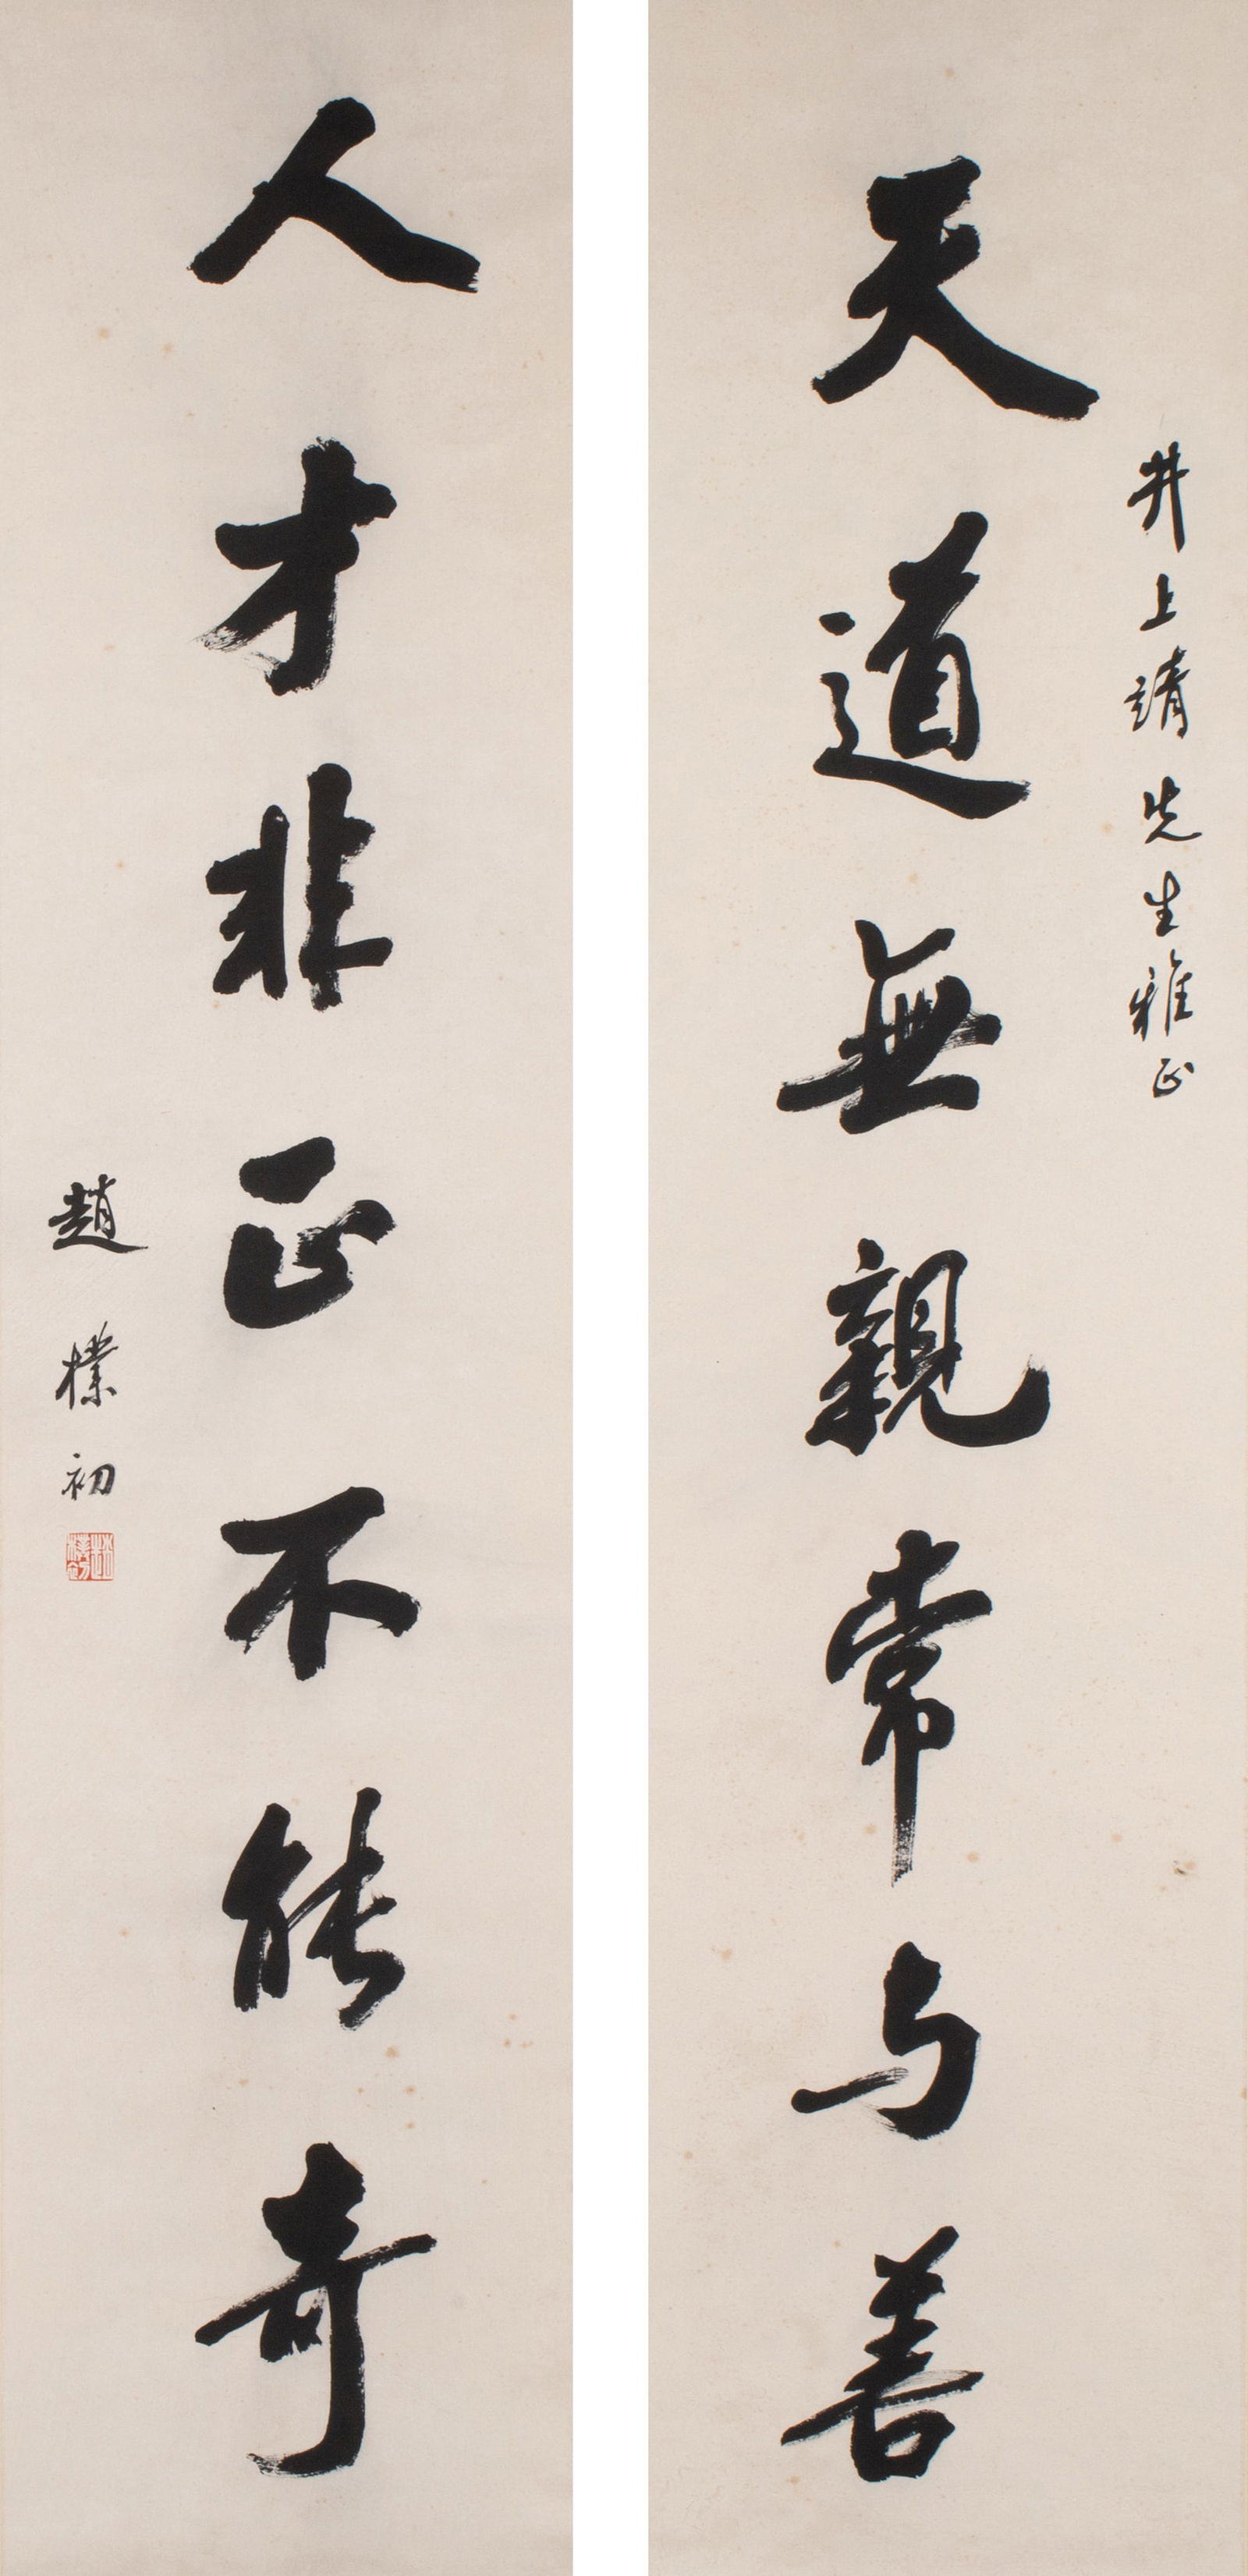 井上靖先生雅正
天道無親常与善
人才非正不能奇
趙樸初
趙樸初